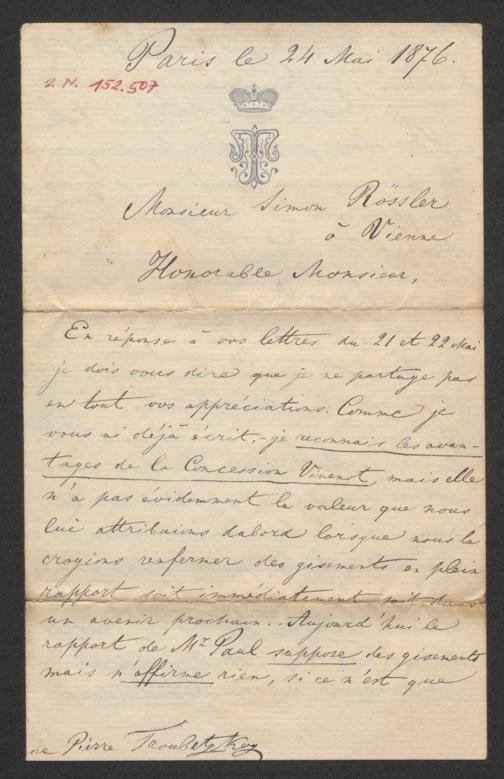 Paris le 24 Mai 1876.
2 N. 152.507
Monsieur Simon Rössler
à Vienne
Honorable Monsieur,
En réponse à vos lettres du 21 et 22 Mai
je dois vous dire que je ne partage pas
en tout vos appréciations. Comme je
vous ai déjà écrit, - je reconnais les avan-
tages de la Concession Vivenot, mais elle
n'a pas évidemment la valeur que nous
lui attribuions dabord lorsque nous la
croyions renfermer des gisements en plein
rapport soit immédiatement soit dans
un avenir prochain. - Aujourd'hui le
rapport de Mr Paul suppose des gisements
mais n'affirme rien, si ce n'est que
ce Pierre Troubetzkoy